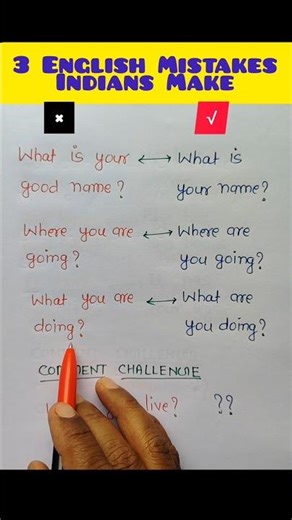 3 English Mistakes
Indians Make
× √
What is your ↔ What is
good name? your name?
Where you are ↔ Where are
going? you going?
What you are ↔ What are
doing? you doing?
COMMENT CHALLENGE
live? ??